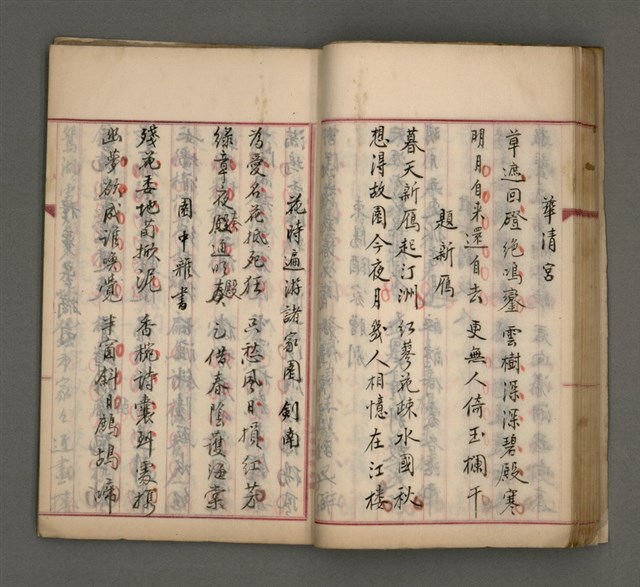 華清宮
草遮回磴絶鳴鑾 雲樹深深碧殿寒
明月自来還自去 更無人倚玉欄干
題新雁
暮天新雁起汀洲 红蓼花疎水國秋
想得故園今夜月 幾人相憶在江楼
花時遍游諸家園 劍南
為愛名花抵死狂 只愁風日損红芳
緑章夜奏通明殿 乞借春陰護海棠
園中雜書
殘花委地筍掀泥 香椀詩囊到處携
幽夢欲成誰喚覺 半窗斜日鷓鴣啼